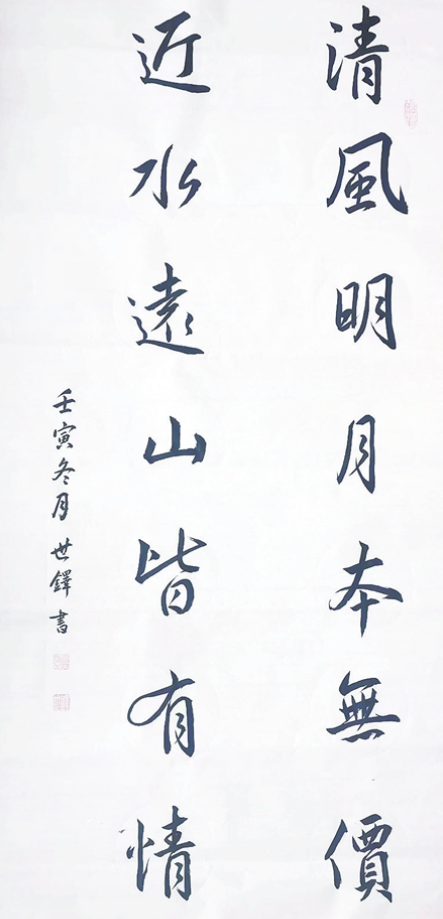 清風明月本無價
近水遠山皆有情
壬寅冬月世鐸書